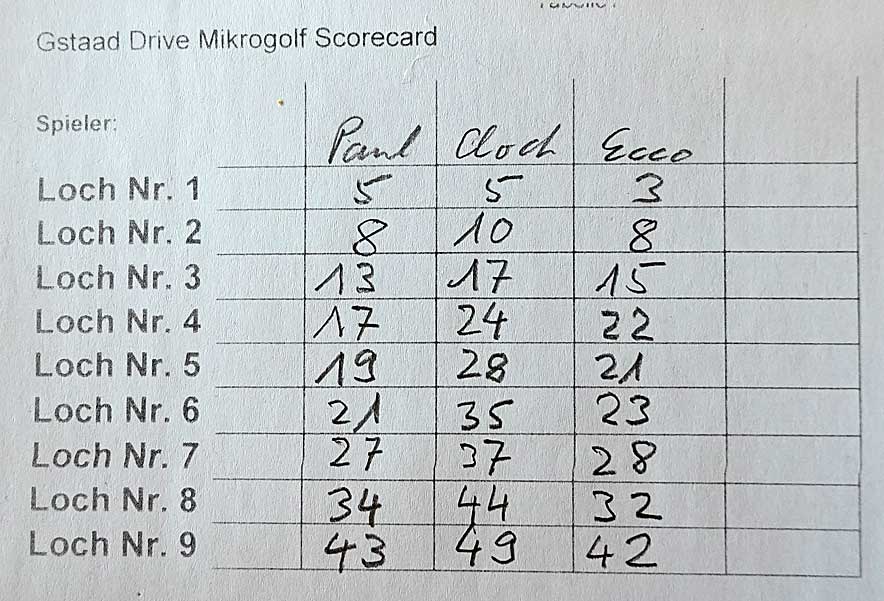 Gstaad Drive Mikrogolf Scorecard
Spieler: Paul Cloch Ecco
Loch Nr. 1 5 5 3
Loch Nr. 2 8 10 8
Loch Nr. 3 13 17 15
Loch Nr. 4 17 24 22
Loch Nr. 5 19 28 21
Loch Nr. 6 21 35 23
Loch Nr. 7 27 37 28
Loch Nr. 8 34 44 32
Loch Nr. 9 43 49 42